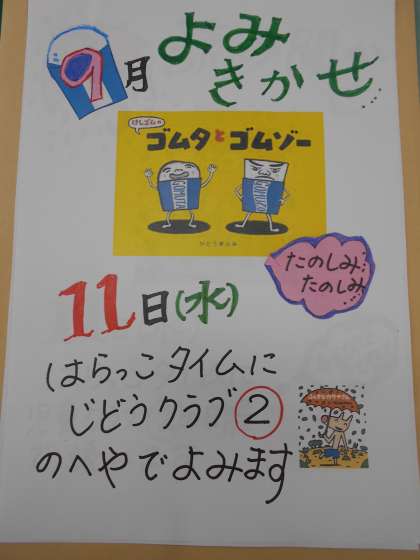 9月 よみ
きかせ...
けしゴムの
ゴムタとゴムゾー
GOMUTA
GOMUZO
たのしみ:
たのしみ...
11日(水)
はらっこタイムに
じどうクラブ②
のへやでよみます